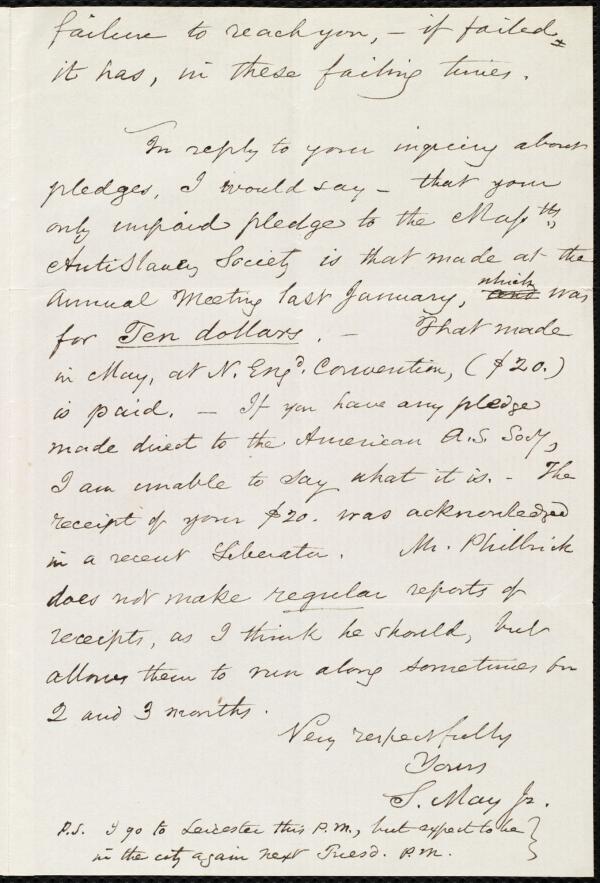 failure to reach you, – if failed
it has, in these failing times.
In reply to your inquiry about
pledges, I would say – that your
only unpaid pledge to the Mass.tts
AntiSlavery Society is that made at the
Annual Meeting last January, which and was
for Ten dollars. – That made
in May, at N. Engd. Convention, ($20.)
is paid. – If you have any pledge
made direct to the American A.S. Socy,
I am unable to say what it is. – The
receipt of your $20. was acknowledged
in a recent Liberator. Mr. Philbrick
does not make regular reports of
receipts, as I think he should, but
allows them to run along sometimes for
2 and 3 months.
Very respectfully
Yours
S. May Jr.
P.S. I go to Leicester this P.M., but expect to be
in the city again next Tuesd. P.M.